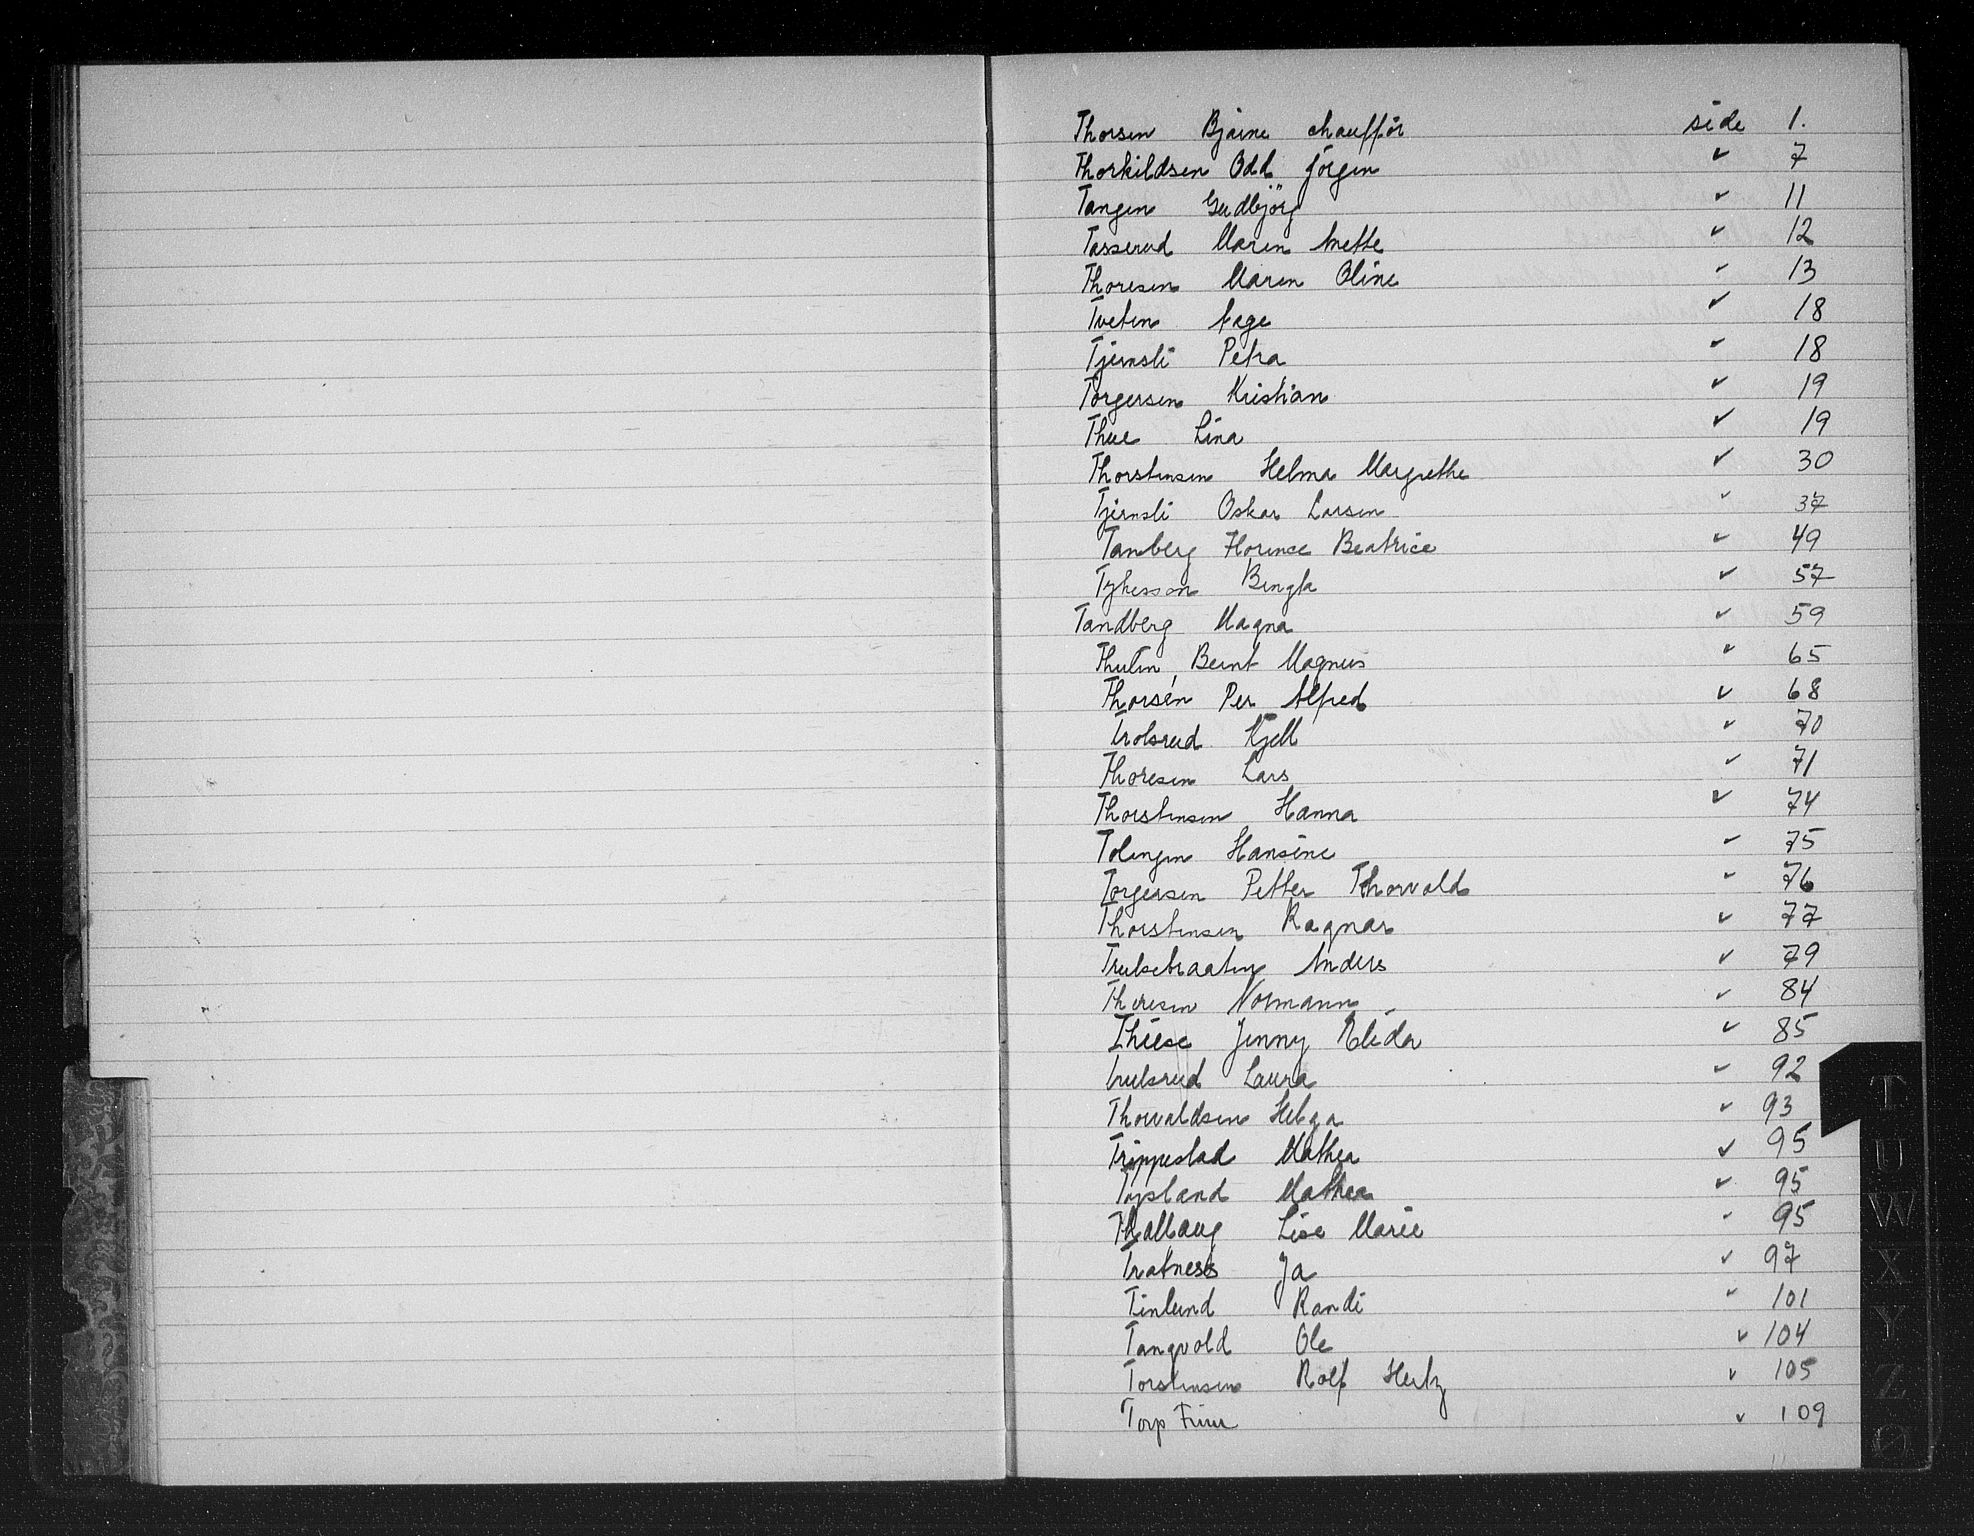 Thorsen Bjarne chauffør side 1.
Thorkildsen Odd Jörgen ✓ 7
Tangen Gudbjörg ✓ 11
Tasserud Maren Anette ✓ 12
Thoresen Maren Oline ✓ 13
Tveten Aage ✓ 18
Tjernsli Petra ✓ 18
Torgersen Kristian ✓ 19
Thue Lina ✓ 19
Thorstensen Helma Margrethe ✓ 30
Tjernsli Oskar Larsen ✓ 37
Tanberg Florence Beatrice ✓ 49
Tykesson Bengta ✓ 57
Tandberg Magna ✓ 59
Thulin, Bernt Magnus ✓ 65
Thorsén Per Alfred ✓ 68
Trolsrud Kjell ✓ 70
Thoresen Lars ✓ 71
Thorstensen Hanna ✓ 74
Tolingen Hansine ✓ 75
Torgersen Petter Thorvald ✓ 76
Thorstensen Ragnar ✓ 77
Trulsebraaten Anders ✓ 79
Thoresen Normann ✓ 84
Thiese Jenny Elida ✓ 85
Trulsrud Laura ✓ 92
Thorvaldsen Helga ✓ 93
Trippestad Mathea ✓ 95
Topsland Mathea ✓ 95
Thallaug Lise Marie ✓ 95
Tratness Ja ✓ 97
Tinlund Randi ✓ 101
Tangvold Ole ✓ 104
Torstensen Rolf Hertz ✓ 105
Torp Finn ✓ 109
T
U
W
X
Y
Z
Ø